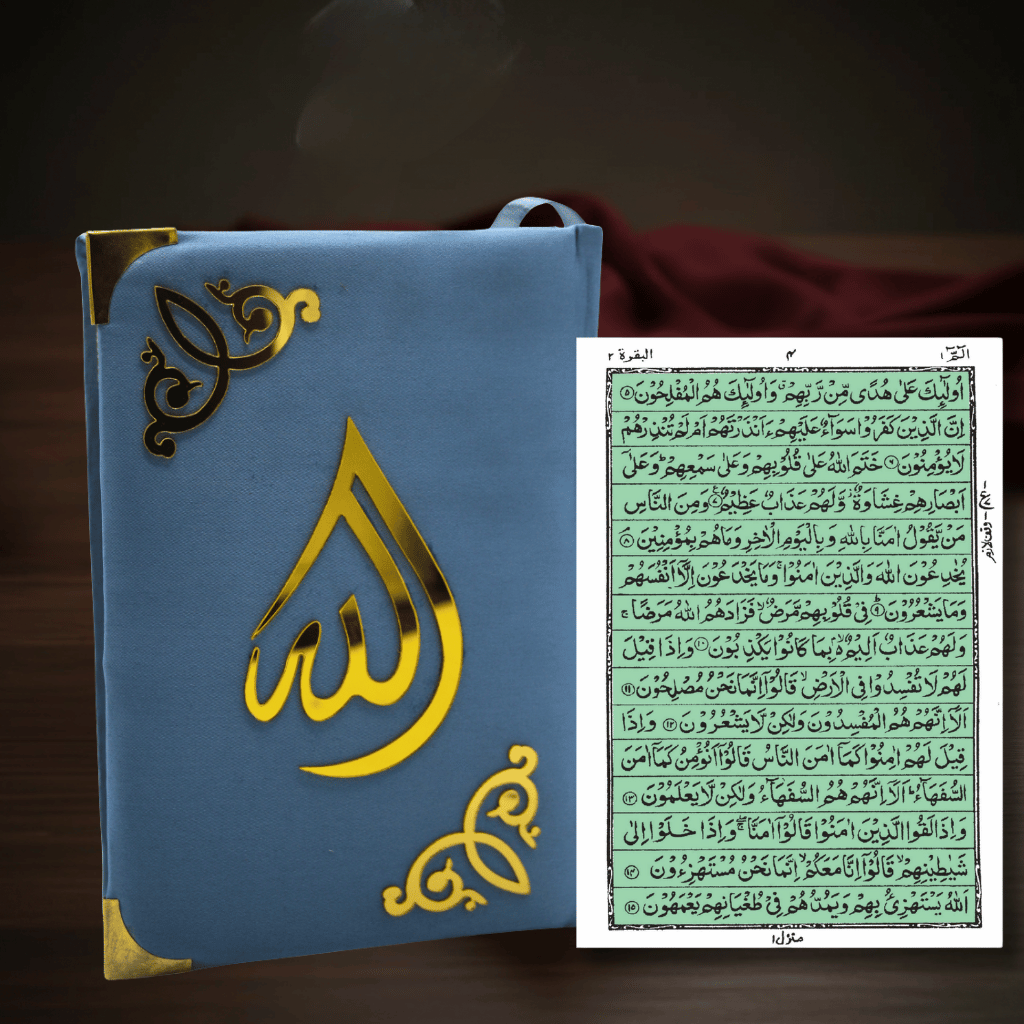 الله
الٓمّٓ ١
۴
البقرة ٢
اُولٰٓئِكَ عَلٰى هُدًى مِّنْ رَّبِّهِمْ ۙ وَاُولٰٓئِكَ هُمُ الْمُفْلِحُوْنَ ۝۵
اِنَّ الَّذِيْنَ كَفَرُوْا سَوَآءٌ عَلَيْهِمْ ءَاَنْذَرْتَهُمْ اَمْ لَمْ تُنْذِرْهُمْ
لَا يُؤْمِنُوْنَ ۝۶ خَتَمَ اللّٰهُ عَلٰى قُلُوْبِهِمْ وَعَلٰى سَمْعِهِمْ ؕ وَعَلٰٓى
اَبْصَارِهِمْ غِشَاوَةٌ ۫ وَّلَهُمْ عَذَابٌ عَظِيْمٌ ۝۷ وَمِنَ النَّاسِ
مَنْ يَّقُوْلُ اٰمَنَّا بِاللّٰهِ وَبِالْيَوْمِ الْاٰخِرِ وَمَا هُمْ بِمُؤْمِنِيْنَ ۝۸
يُخٰدِعُوْنَ اللّٰهَ وَالَّذِيْنَ اٰمَنُوْا ۚ وَمَا يَخْدَعُوْنَ اِلَّاۤ اَنْفُسَهُمْ
وَمَا يَشْعُرُوْنَ ۝۹ فِيْ قُلُوْبِهِمْ مَّرَضٌ ۙ فَزَادَهُمُ اللّٰهُ مَرَضًا ۚ
وَلَهُمْ عَذَابٌ اَلِيْمٌ ۢۙ بِمَا كَانُوْا يَكْذِبُوْنَ ۝۱۰ وَاِذَا قِيْلَ
لَهُمْ لَا تُفْسِدُوْا فِي الْاَرْضِ ۙ قَالُوْٓا اِنَّمَا نَحْنُ مُصْلِحُوْنَ ۝۱۱
اَلَآ اِنَّهُمْ هُمُ الْمُفْسِدُوْنَ وَلٰكِنْ لَّا يَشْعُرُوْنَ ۝۱۲ وَاِذَا
قِيْلَ لَهُمْ اٰمِنُوْا كَمَآ اٰمَنَ النَّاسُ قَالُوْٓا اَنُؤْمِنُ كَمَآ اٰمَنَ
السُّفَهَآءُ ؕ اَلَآ اِنَّهُمْ هُمُ السُّفَهَآءُ وَلٰكِنْ لَّا يَعْلَمُوْنَ ۝۱۳
وَاِذَا لَقُوا الَّذِيْنَ اٰمَنُوْا قَالُوْٓا اٰمَنَّا ۖۚ وَاِذَا خَلَوْا اِلٰى
شَيٰطِيْنِهِمْ ۙ قَالُوْٓا اِنَّا مَعَكُمْ ۙ اِنَّمَا نَحْنُ مُسْتَهْزِءُوْنَ ۝۱۴
اَللّٰهُ يَسْتَهْزِئُ بِهِمْ وَيَمُدُّهُمْ فِيْ طُغْيَانِهِمْ يَعْمَهُوْنَ ۝۱۵
وقف لازم
منزل ١